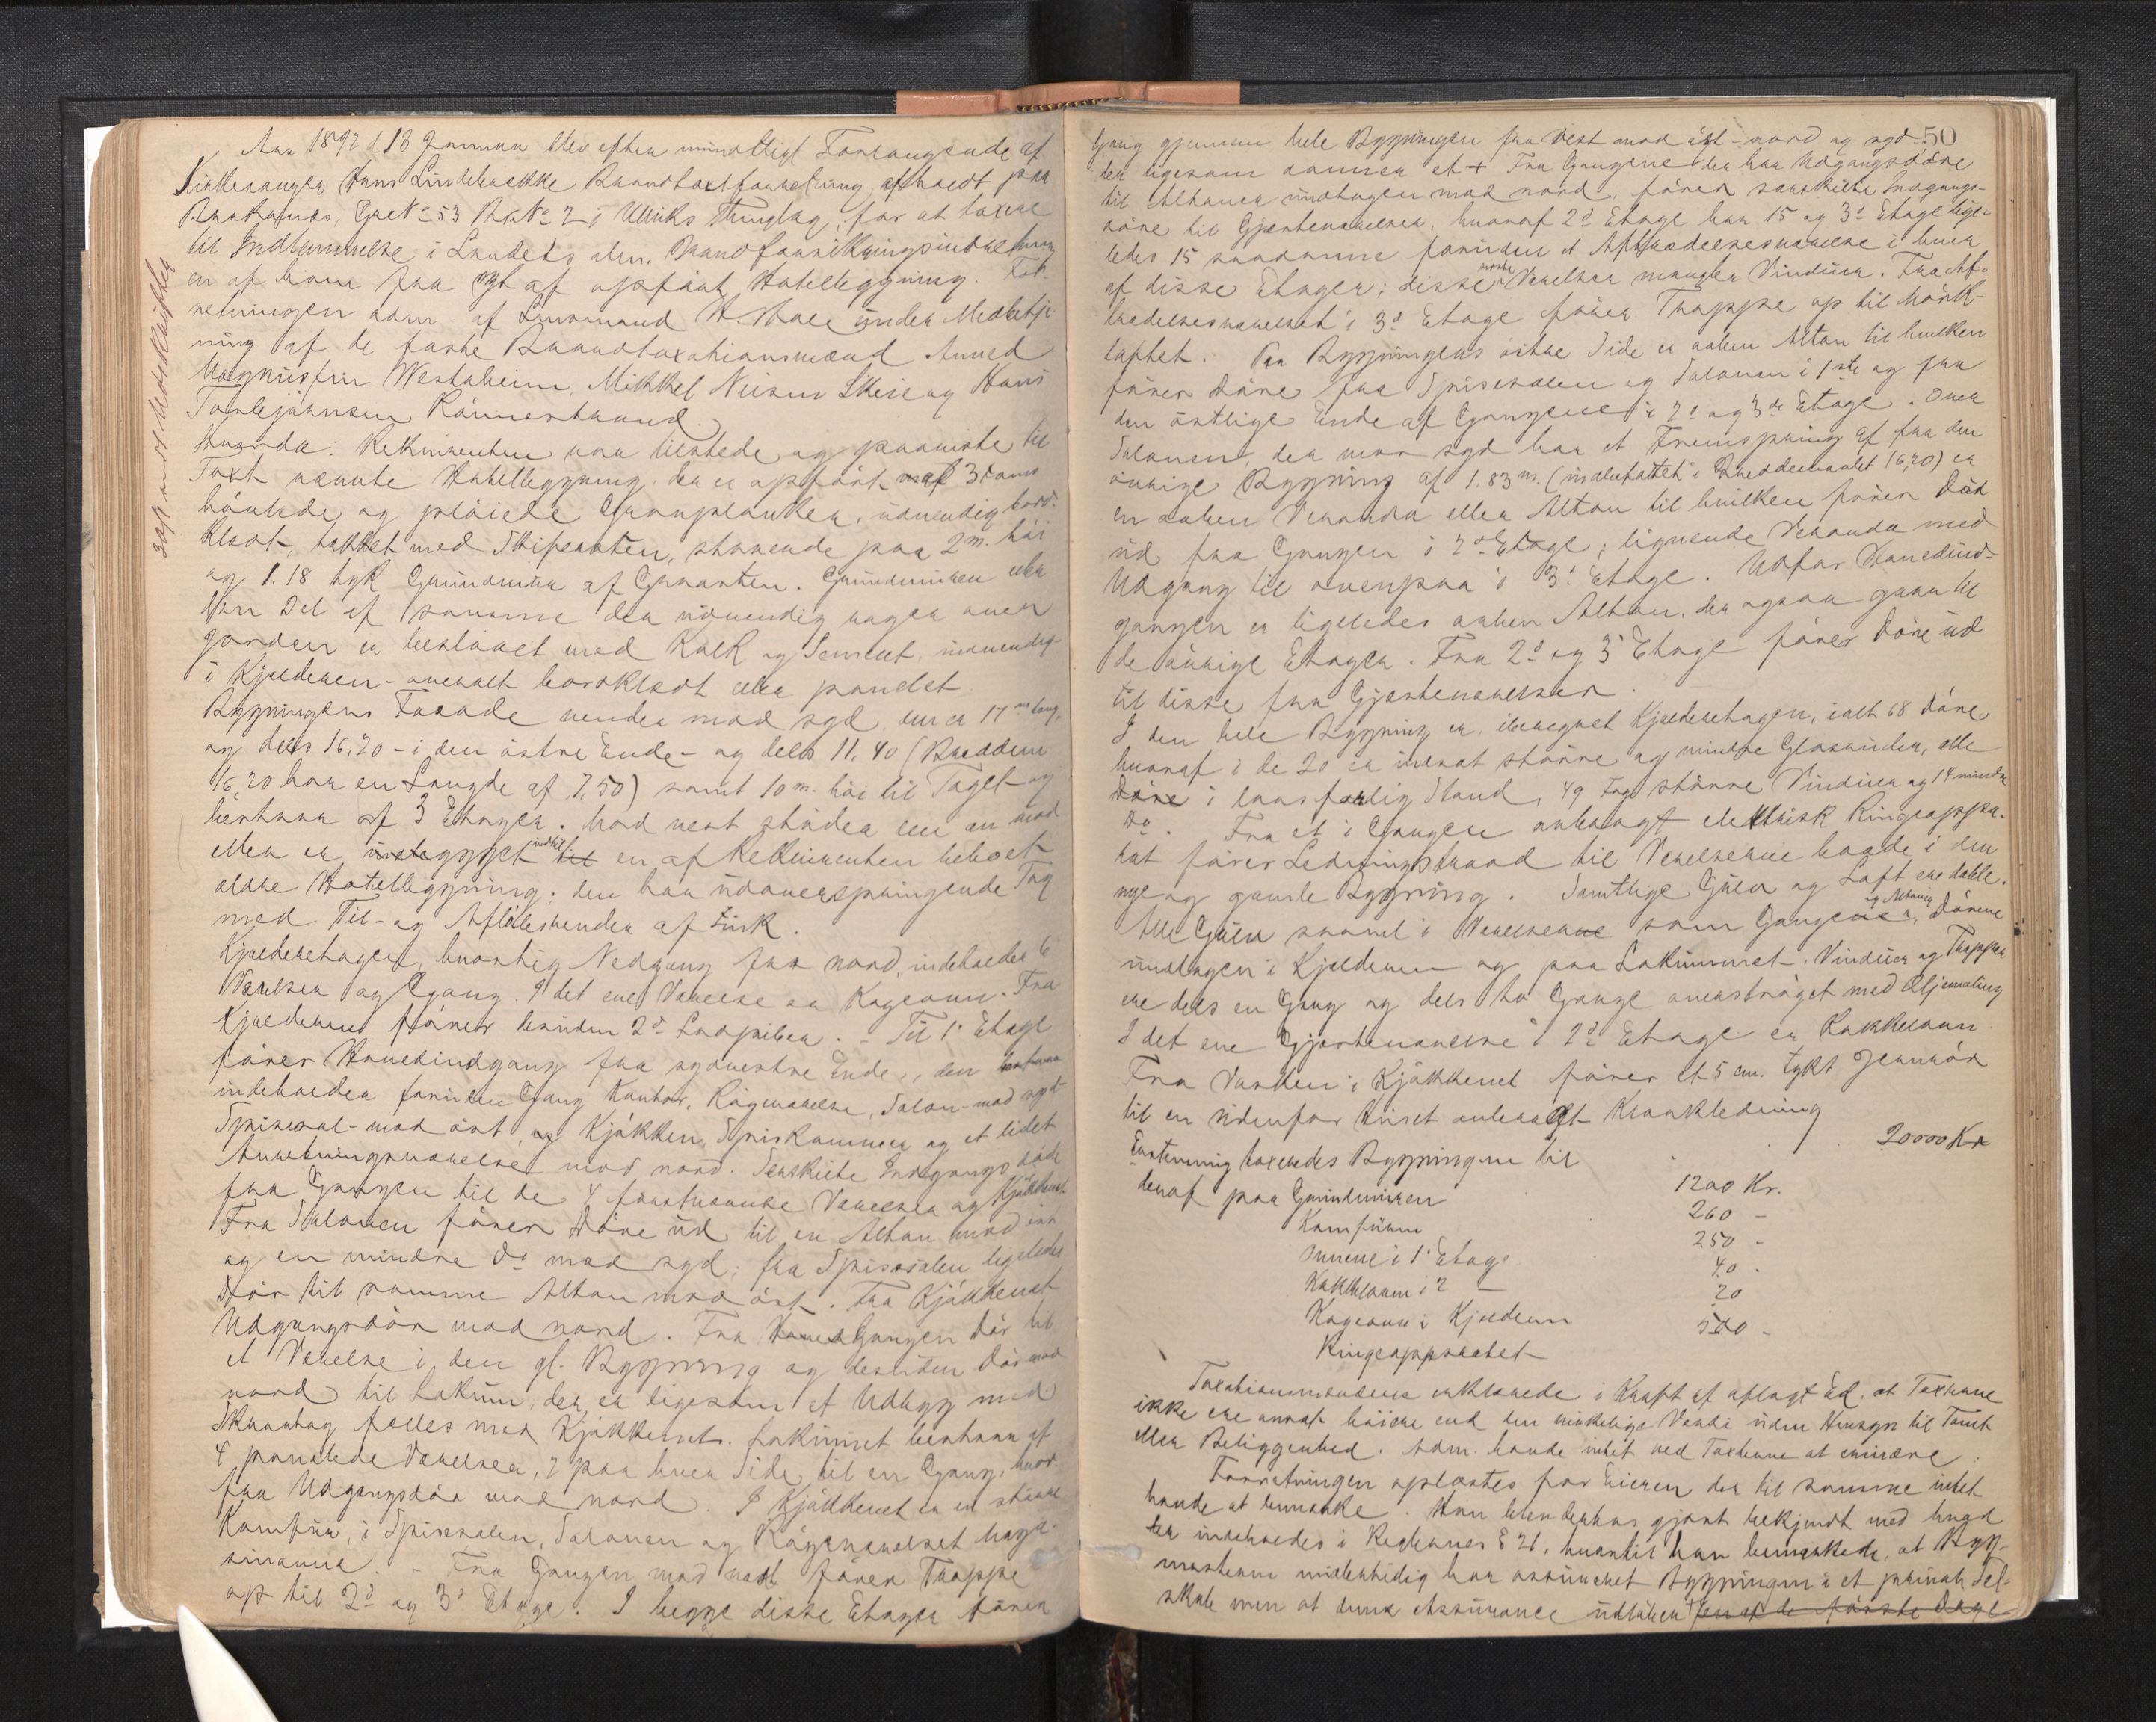 Aar 1892 d. 13 Januar blev efter mundtligt Forlangende af
Kirkesanger Hans Lindebrække Brandtaxtforretning afholdt paa
Brakanes, Gno. 53 Bno. 2 i Ulviks Thinglag, for at taxere
til Indlemmelse i Landets alm. Brandforsikringsindretning
en af ham fra nyt af opført Hotelbygning. For-
retningen adm. af Lensmand under Medbetje-
ning af de faste Brandtaxationsmænd Amund
Magnusson Westrheim, Mikkel Nilsen Skeie og Hans
Torbjørnsen Rønnestrand.
Hvorda: Rekvirenten var tilstede og paaviste til
Taxt nævnte Hotelbygning, der er opført af 3 Toms
høvlede og pløiede Granplanker, udvendig bord-
klædt, tækket med Skifersten, staaende paa 2 m. høi
og 1.18 tyk Grundmur af Graasten. Grundmuren eller
den Del af samme der udvendig rager over
Jorden er beslaaet med Kalk og Sement, indvendig
i Kjelderen overalt bordklædt eller panelet.
Bygningens Facade vender mod syd, den er 17 m lang,
og dels 16,20 - i den østre Ende - og dels 11.40 (Bredden
16,20 har en Længde af 7,50) samt 10 m. høi til Taget og
bestaar af 3 Etager. Mod vest støder den an mod
eller er indbygget til en af Rekvirenten beboet
ældre Hotelbygning; den har udoverspringende Tag
med Til- og Afløbsrender af Zink.
Kjelderetagen, hvortil Nedgang fra nord, indeholder 6
Værelser og Gang. I det ene Værelse er Kogeovn. Fra
Kjelderen fører desuden 2de Lodpiber. - Til 1. Etage
fører Hovedindgang fra sydvestre Ende, den
indeholder foruden Gang Kontor, Røgeværelse, Salon mod syd
Spisesal - mod øst, og Kjøkken, Spiskammer og et lidet
Anretningsværelse mod nord. Særskilte Indgangsdøre
fra Gangen til de 4 førstnævnte Værelser og Kjøkkenet
Fra Salonen fører Døre ud til en Altan mod øst
og en mindre Do mod syd; fra Spisesalen ligeledes
Dør til samme Altan mod øst. Fra Kjøkkenet
Udgangsdør mod nord. Fra Gangen Dør til
et Værelse i den gl. Bygning og desuden Dør mod
nord til Lokum, der er ligesom et Udbygg med
Skraatag fælles med Kjøkkenet. Lokumet bestaar af
4 panelede Værelser, 2 paa hver Side til en Gang, hvor-
fra Udgangsdør mod nord. I Kjøkkenet er en større
Komfur, i Spisesalen, Salonen og Røgeværelset Maga-
sinovne. - Fra Gangen mod vest fører Trappe
op til 2d og 3d Etage. I begge disse Etager fører
3 Udskrifter
50
Gang gjennem hele Bygningen fra Vest mod øst - nord og syd
der ligesom danner et + Fra Gangene der har Udgangsdøre
til Altaner undtagen mod nord, fører særskilte Indgangs-
døre til Gjesteværelser, hvoraf 2d Etage har 15 og 3d Etage lige-
ledes 15 saadanne foruden et Aftrædelsesværelse i hver
af disse Etager; disse Værelser mangler Vinduer. Fra Af-
trædelsesværelset i 3d Etage fører Trappe op til Mørk-
loftet. Paa Bygningens østre Side er aaben Altan til hvilken
fører Døre fra Spisesalen og Salonen i 1ste og fra
den østlige Ende af Gangene i 2d og 3de Etage. Over
Salonen, der mod syd har et Fremspring af fra den
øvrige Bygning af 1.83 m. (indbefattet i Breddemaalet 16,20) er
en aaben Veranda eller Altan til hvilken fører Dør
ud fra Gangen i 2d Etage; lignende Veranda med
Udgang til ovenpaa i 3d Etage. Udfor Hovedind-
gangen er ligeledes aaben Altan, der ogsaa gaar til
de øvrige Etager. Fra 2d og 3d Etage fører Døre ud
til disse fra Gjesteværelser.
I den hele Bygning er, iberegnet Kjelderetagen, ialt 68 Døre
hvoraf i de 20 er indsat større og mindre Glasruder, alle
Døre i laasfærdig Stand, 49 Fag større Vinduer og 14 mindre
Do. Fra et i Gangen anbragt elektrisk Ringeappa-
rat fører Ledningstraad til Værelserne baade i den
nye og gamle Bygning. Samtlige Gulv og Loft ere doble.
Alle Gulv saavel i Værelserne som Gangene og Altaner, Dørene
undtagen i Kjelderen og paa Lokummet, Vinduer og Trapper
ere dels en Gang og dels to Gange overstrøget med Oljemaling
I det ene Gjesteværelse i 2d Etage er Kakkelovn.
Fra Vasken i Kjøkkenet fører et 5 cm. tykt Jernrør
til en udenfor Huset anbragt Kloakledning
Enstemmig taxeredes Bygningen til 20000 Kr
deraf paa Grundmuren 1200 Kr.
Komfuren 260 -
Ovnene i 1. Etage 250 -
Kakkelovn i 2 - 40 -
Kogeovn i Kjelderen 20
Ringeapparatet 500 -
Taxationsmændene erklærede i Kraft af aflagt Ed, at Taxterne
ikke ere ansat høiere end den virkelige Værdi uden Hensyn til Tomt
eller Beliggenhed. Adm. havde intet ved Taxterne at erindre.
Forretningen oplæstes for Eieren der til samme intet
havde at bemærke. Han blev derhos gjort bekjendt med hvad
der indeholdes i Reglernes § 21, hvortil han bemærkede, at Byg-
mesteren midlertidig har assureret Bygningen i et privat Sel-
skab men at denne Assurance udløber en af de første Dage